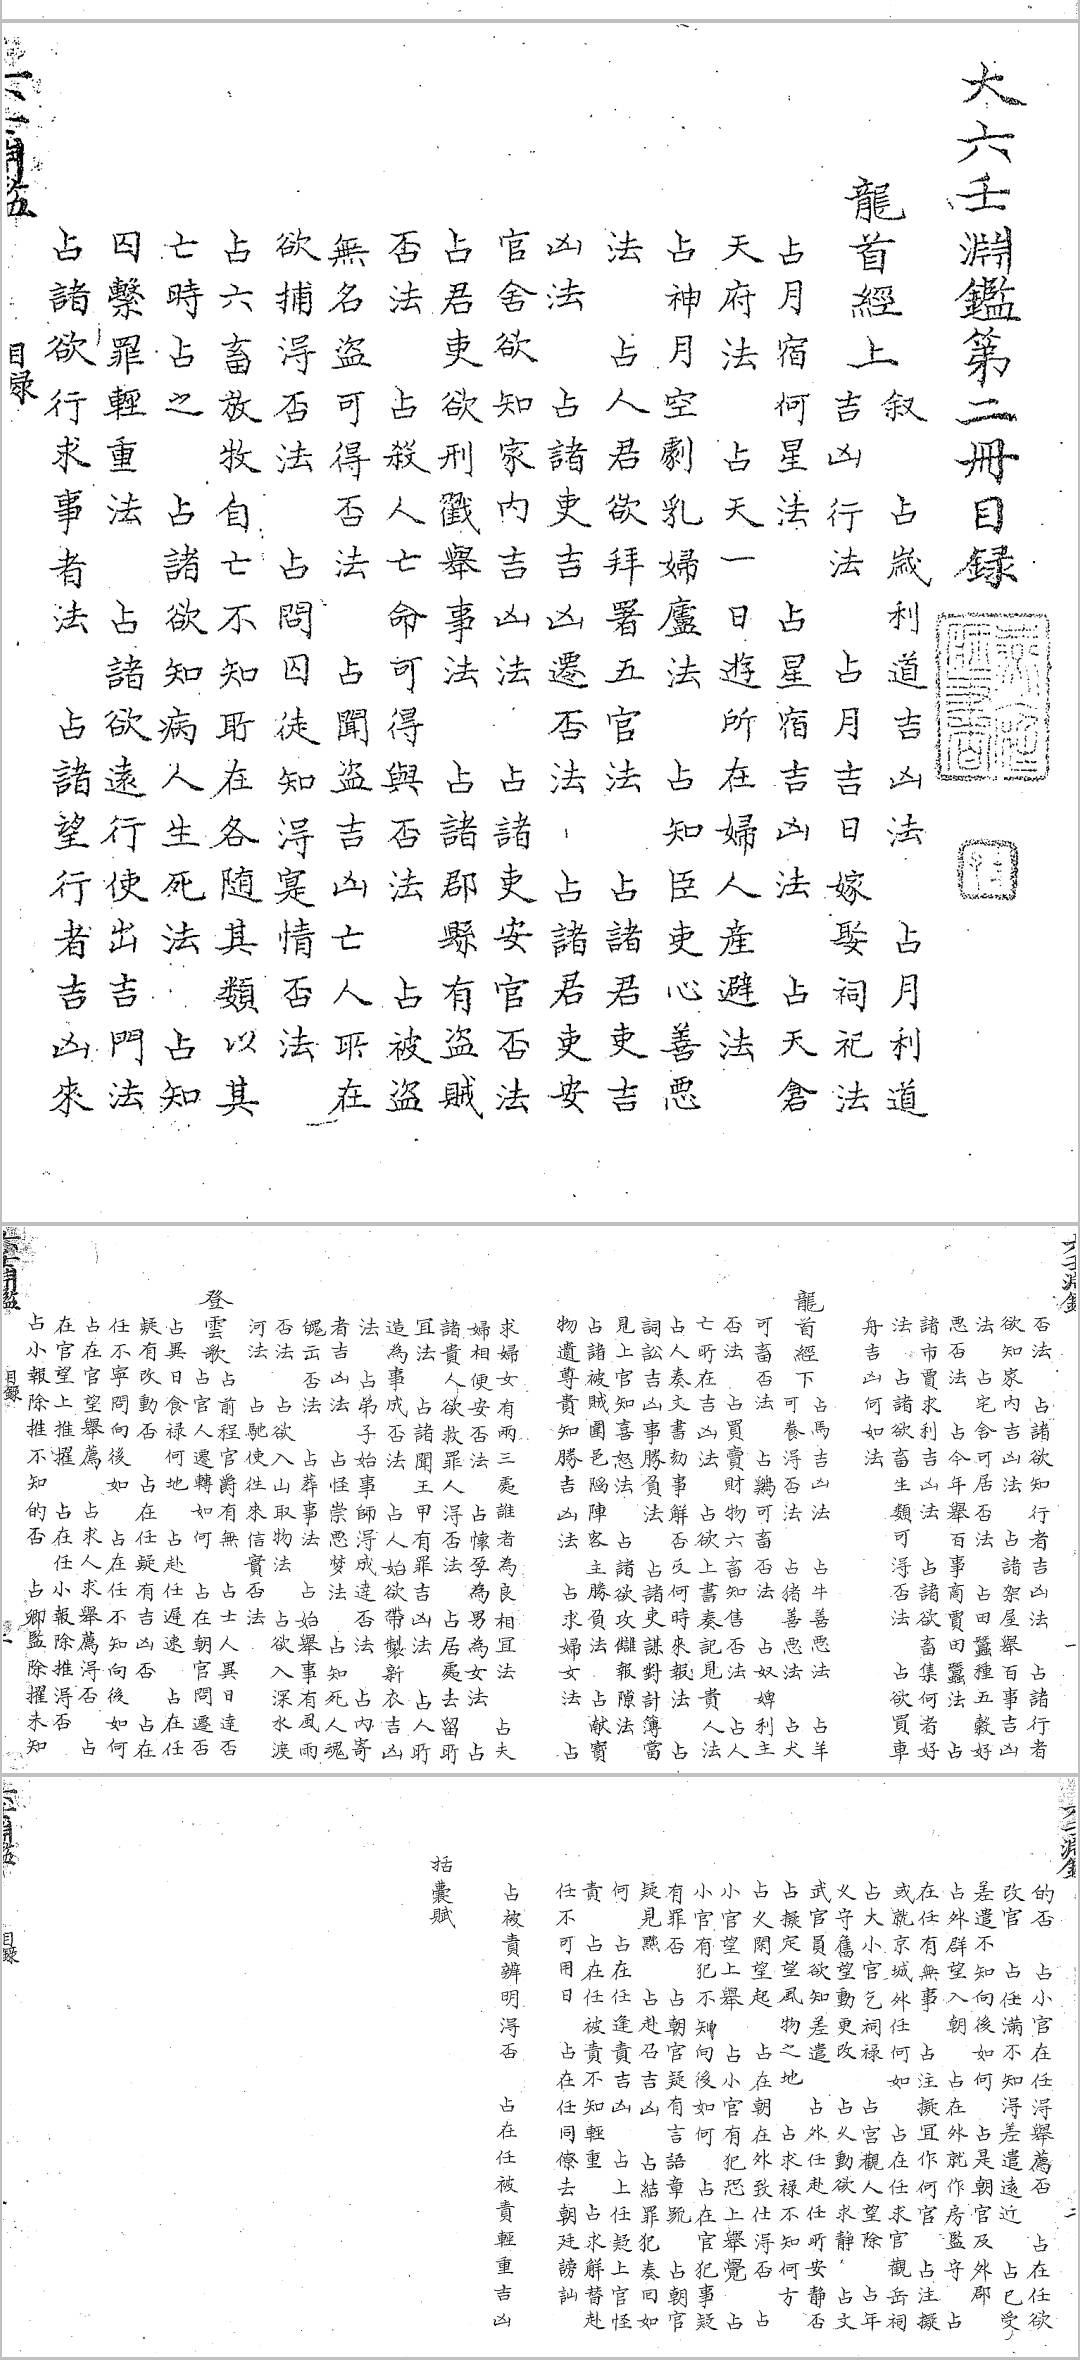 大六壬淵鑑第二冊目録
龍首經上
叙　占歳利道吉凶法　占月利道
吉凶行法　占月吉日嫁娶祠祀法
占月宿何星法　占星宿吉凶法　占天倉
天府法　占天一日遊所在婦人産避法
占神月空劇乳婦廬法　占知臣吏心善惡
法　占人君欲拜署五官法　占諸君吏吉
凶法　占諸吏吉凶遷否法　占諸君吏安
官舍欲知家内吉凶法　占諸吏安官否法
占君吏欲刑戮舉事法　占諸郡縣有盜賊
否法　占殺人亡命可得與否法　占被盜
無名盜可得否法　占聞盜吉凶亡人所在
欲捕得否法　占問囚徒知得寔情否法
占六畜放牧自亡不知所在各随其類以其
亡時占之　占諸欲知病人生死法　占知
囚繫罪輕重法　占諸欲遠行使出吉門法
占諸欲行求事者法　占諸望行者吉凶來
目录
否法　占諸欲知行者吉凶法　占諸行者
欲知家内吉凶法　占諸架屋舉百事吉凶
法　占宅舍可居否法　占田蠶種五穀好
惡否法　占今年舉百事商賈田蠶法　占
諸市賈求利吉凶法　占諸欲畜集何者好
法　占諸欲畜生類可得否法　占欲買車
舟吉凶何如法
龍首經下
占馬吉凶法　占牛善惡法　占羊
可養得否法　占猪善惡法　占犬
可畜否法　占鷄可畜否法　占奴婢利主
否法　占買賣財物六畜知售否法　占人
亡所在吉凶法　占欲上書奏記見貴人法
占人奏文書劾事解否反何時來報法　占
詞訟吉凶事勝負法　占諸吏謀對計簿當
見上官知喜怒法　占諸欲攻讎報隙法
占諸被賊圍邑陷陣客主勝負法　占献寶
物遺尊貴知勝吉凶法　占求婦女法　占
求婦女有兩三處誰者為良相宜法　占夫
婦相便安否法　占懐孕為男為女法　占
諸貴人欲救罪人得否法　占居處去留所
宜法　占諸聞王甲有罪吉凶法　占人所
造為事成否法　占人始欲帶製新衣吉凶
法　占弟子始事師得成達否法　占内寄
者吉凶法　占怪祟惡梦法　占知死人魂
魄云否法　占葬事法　占始舉事有風雨
否法　占欲入山取物法　占欲入深水渡
河法　占馳使徃來信實否法
登雲歌
占前程官爵有無　占士人異日達否
占官人遷轉如何　占在朝官問遷否
占異日食禄何地　占赴任遲速　占在任
疑有改動否　占在任疑有吉凶否　占在
任不寧問向後如　占在任不知向後如何
占在官望舉薦　占求人求舉薦得否　占
在官望上推擢　占在任小報除推得否
占小報除推不知的否　占卿監除擢未知
目録
的否　占小官在任得舉薦否　占在任欲
改官　占任滿不知得差遣遠近　占已受
差遣不知向後如何　占是朝官及外郡
占外群望入朝　占在外就作房監守　占
在任有無事　占注擬宜作何官　占注擬
或就京城外任何如　占在任求官觀岳祠
占大小官乞祠禄　占宫觀人望除　占年
乂守舊望動更改　占乂動欲求静　占文
武官員欲知差遣　占外任赴任所安静否
占擬定望風物之地　占求禄不知何方
占乂閑望起　占在朝在外致仕得否　占
小官望上舉　占小官有犯恐上舉覺　占
小官有犯不知向後如何　占在官犯事疑
有罪否　占朝官疑有言語章䟽　占朝官
疑見黜　占赴召吉凶　占結罪犯奏回如
何　占在任逢責吉凶　占上任疑上官怪
責　占在任被責不知輕重　占求解替赴
任不可用日　占在任同僚去朝廷謗訕
占被責辨明得否　占在任被責輕重吉凶
括囊賦
目録